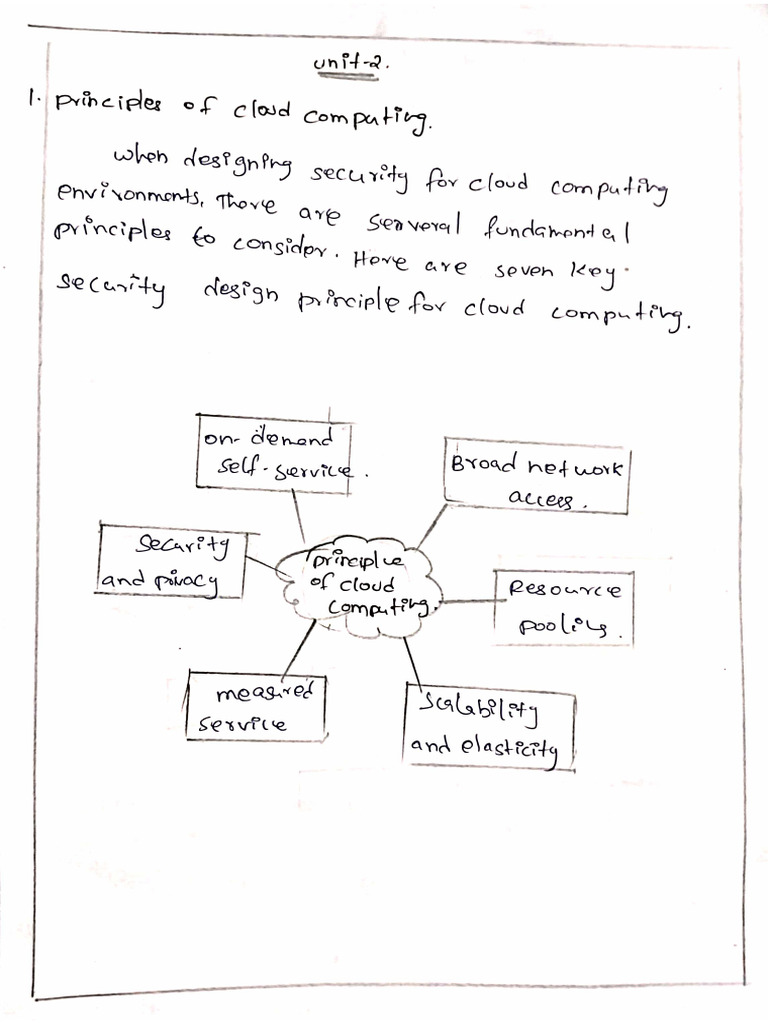 unit-2.
1. principles of cloud computing.
when designing security for cloud computing
environments, There are serveral fundamental
principles to consider. Here are seven key
security design principle for cloud computing.
on-demand
self-service.
Broad network
access.
Security
and privacy
principlue
of cloud
computing.
Resource
pooling.
measured
service
Scalability
and elasticity